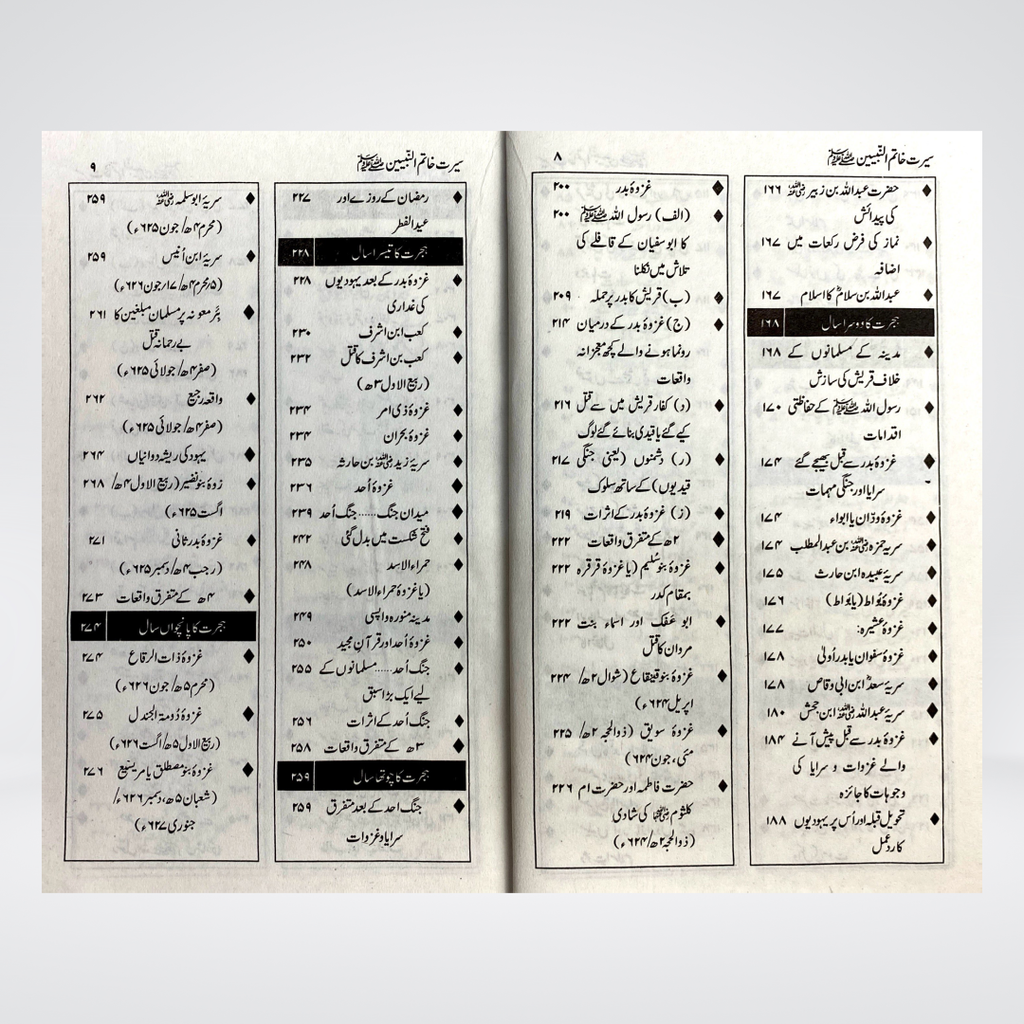 سیرت خاتم النّبیین ﷺ ۸
حضرت عبداللہ بن زبیر رضی اللہ عنہ ۱۶۶
کی پیدائش
نماز کی فرض رکعات میں ۱۶۷
اضافہ
عبداللہ بن سلامؓ کا اسلام ۱۶۷
ہجرت کا دوسرا سال ۱۶۸
مدینہ کے مسلمانوں کے ۱۶۸
خلاف قریش کی سازش
رسول اللہ ﷺ کے حفاظتی ۱۷۰
اقدامات
غزوۂ بدر سے قبل بھیجے گئے ۱۷۴
سرایا اور جنگی مہمات
غزوۂ ودّان یا ابواء ۱۷۴
سریہ حمزہ رضی اللہ عنہ بن عبدالمطلب ۱۷۴
سریۂ عبیدہ ابن حارث ۱۷۵
غزوۂ بُواط (یا بَواط) ۱۷۶
غزوۂ عشیرہ: ۱۷۷
غزوۂ سفوان یا بدر اُولیٰ ۱۷۸
سریۂ سعدؓ ابن ابی وقاص ۱۷۸
سریۂ عبداللہ رضی اللہ عنہ ابن جحش ۱۸۰
غزوۂ بدر سے قبل پیش آنے ۱۸۴
والے غزوات و سرایا کی
وجوہات کا جائزہ
تحویل قبلہ اور اُس پر یہودیوں ۱۸۸
کا ردِ عمل
غزوۂ بدر ۲۰۰
(الف) رسول اللہ ﷺ ۲۰۰
کا ابوسفیان کے قافلے کی
تلاش میں نکلنا
(ب) قریش کا بدر پر حملہ ۲۰۹
(ج) غزوۂ بدر کے درمیان ۲۱۴
رونما ہونے والے کچھ معجزانہ
واقعات
(د) کفار قریش میں سے قتل ۲۱۶
کیے گئے یا قیدی بنائے گئے لوگ
(ر) دشمنوں (یعنی جنگی ۲۱۷
قیدیوں) کے ساتھ سلوک
(ز) غزوۂ بدر کے اثرات ۲۱۹
۲ھ کے متفرق واقعات ۲۲۲
غزوۂ بنو سُلیم (یا غزوۂ قرقرہ ۲۲۲
بمقام کدر
ابو عَفَک اور اسماء بنت ۲۲۲
مروان کا قتل
غزوۂ بنو قینقاع (شوال ۲ھ/ ۲۲۴
اپریل ۶۲۴ء)
غزوۂ سویق (ذوالحجہ ۲ھ/ ۲۲۵
مئی، جون ۶۲۴)
حضرت فاطمہ اور حضرت ام ۲۲۶
کلثوم رضی اللہ عنہما کی شادی
(ذوالحجہ ۲ھ/ ۶۲۴ء)
سیرت خاتم النّبیین ﷺ ۹
رمضان کے روزے اور ۲۲۷
عیدالفطر
ہجرت کا تیسرا سال ۲۲۸
غزوۂ بدر کے بعد یہودیوں ۲۲۸
کی غداری
کعب ابن اشرف ۲۳۰
کعب بن اشرف کا قتل ۲۳۲
(ربیع الاول ۳ھ)
غزوۂ ذی امر ۲۳۴
غزوۂ بحران ۲۳۴
سریۂ زید رضی اللہ عنہ بن حارثہ ۲۳۵
غزوۂ اُحد ۲۳۶
میدانِ جنگ ...... جنگ اُحد ۲۳۹
فتح شکست میں بدل گئی ۲۴۲
حمراء الاسد ۲۴۸
(یا غزوۂ حمراء الاسد)
مدینہ منورہ واپسی ۲۴۹
غزوۂ اُحد اور قرآنِ مجید ۲۵۰
جنگ اُحد ...... مسلمانوں کے ۲۵۵
لیے ایک بڑا سبق
جنگ اُحد کے اثرات ۲۵۶
۳ھ کے متفرق واقعات ۲۵۸
ہجرت کا چوتھا سال ۲۵۹
جنگ احد کے بعد متفرق ۲۵۹
سرایا و غزوات
سریۂ ابو سلمہ رضی اللہ عنہ ۲۵۹
(محرم ۴ھ/ جون ۶۲۵ء)
سریۂ ابن اُنیس ۲۵۹
(۵/محرم ۴ھ/ ۱۷/جون ۶۲۶ء)
بئرِ معونہ پر مسلمان مبلغین کا ۲۶۱
بے رحمانہ قتل
(صفر ۴ھ/ جولائی ۶۲۵ء)
واقعہ رجیع ۲۶۲
(صفر ۴ھ/ جولائی ۶۲۵ء)
یہود کی ریشہ دوانیاں ۲۶۴
زوۂ بنو نضیر (ربیع الاول ۴ھ/ ۲۶۸
اگست ۶۲۵ء)
غزوۂ بدر ثانی ۲۷۱
(رجب ۴ھ/ دسمبر ۶۲۵ء)
۴ھ کے متفرق واقعات ۲۷۳
ہجرت کا پانچواں سال ۲۷۴
غزوۂ ذات الرقاع ۲۷۴
(محرم ۵ھ/ جون ۶۲۶ء)
غزوۂ دُومۃ الجندل ۲۷۵
(ربیع الاول ۵ھ/ اگست ۶۲۶ء)
غزوۂ بنو مصطلق یا مریسیع ۲۷۶
(شعبان ۵ھ، دسمبر ۶۲۶ء/
جنوری ۶۲۷ء)